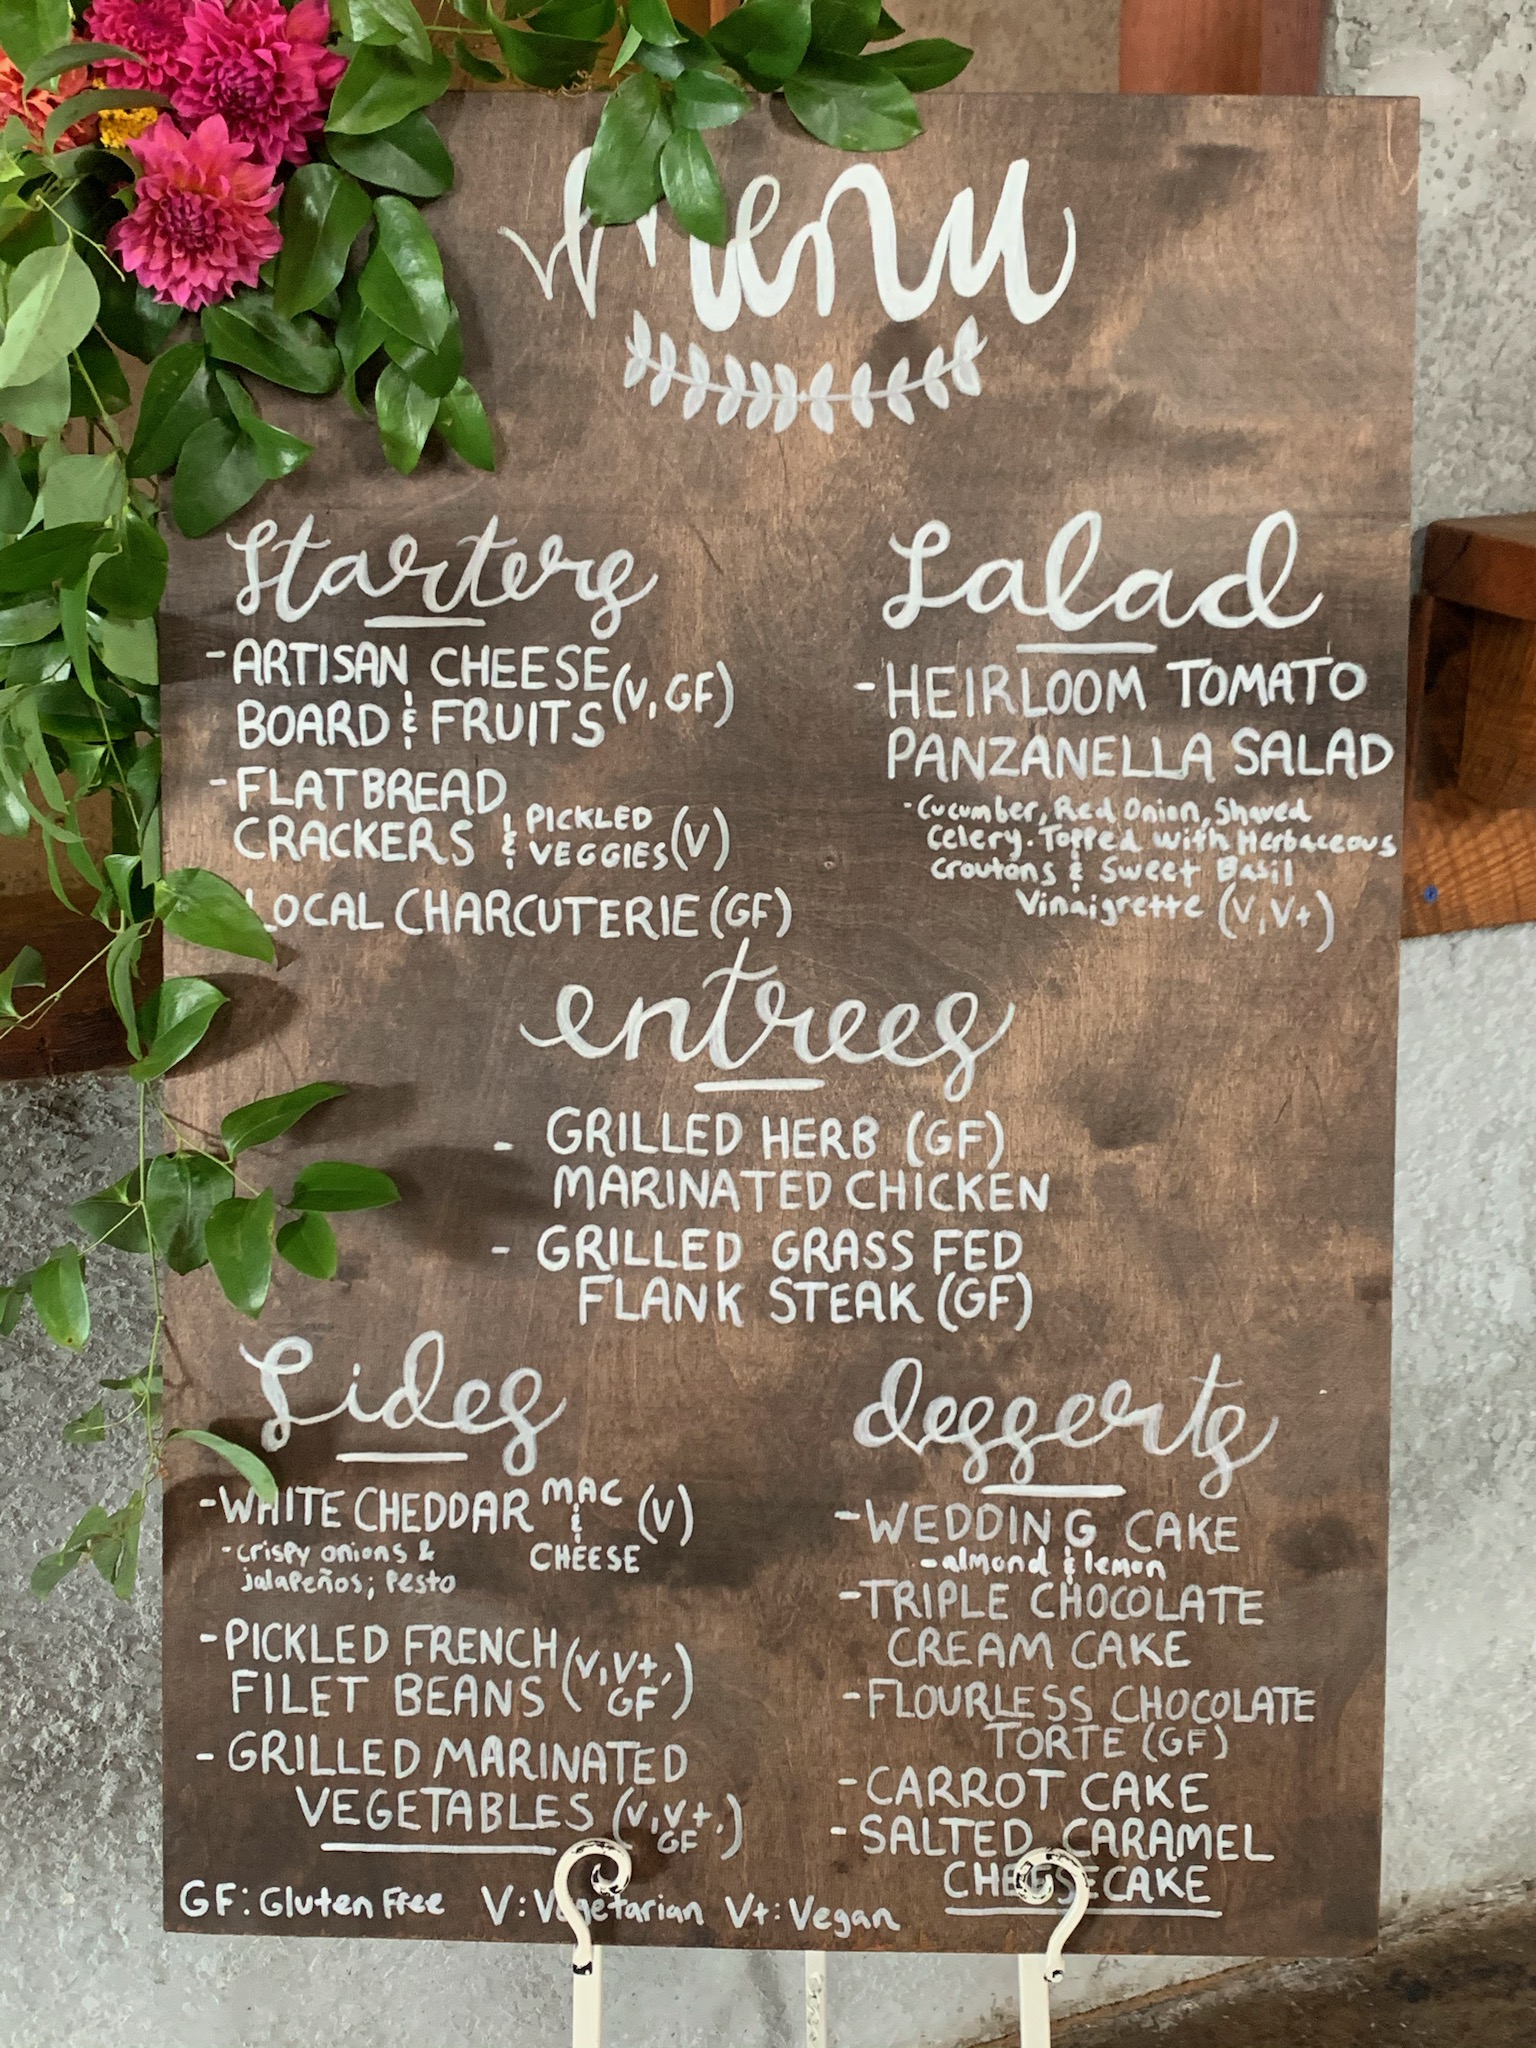 Menu
Starters
- ARTISAN CHEESE
BOARD & FRUITS (V, GF)
- FLATBREAD
CRACKERS & PICKLED
VEGGIES (V)
LOCAL CHARCUTERIE (GF)
Salad
- HEIRLOOM TOMATO
PANZANELLA SALAD
- Cucumber, Red Onion, Shaved
Celery. Topped with Herbaceous
Croutons & Sweet Basil
Vinaigrette (V, V+)
entrees
- GRILLED HERB (GF)
MARINATED CHICKEN
- GRILLED GRASS FED
FLANK STEAK (GF)
Sides
- WHITE CHEDDAR MAC
&
CHEESE (V)
- crispy onions &
jalapeños; pesto
- PICKLED FRENCH
FILET BEANS (V, V+, GF)
- GRILLED MARINATED
VEGETABLES (V, V+, GF)
desserts
- WEDDING CAKE
- almond & lemon
- TRIPLE CHOCOLATE
CREAM CAKE
- FLOURLESS CHOCOLATE
TORTE (GF)
- CARROT CAKE
- SALTED CARAMEL
CHEESECAKE
GF: Gluten Free V: Vegetarian V+: Vegan